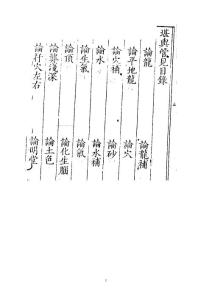 堪輿管見目錄
論龍 論龍補
論平地龍 論穴
論穴補 論砂
論水 論水補
論生氣 論氣
論頂 論化生腦
論葬淺深 論土色
論扦穴左右 論明堂